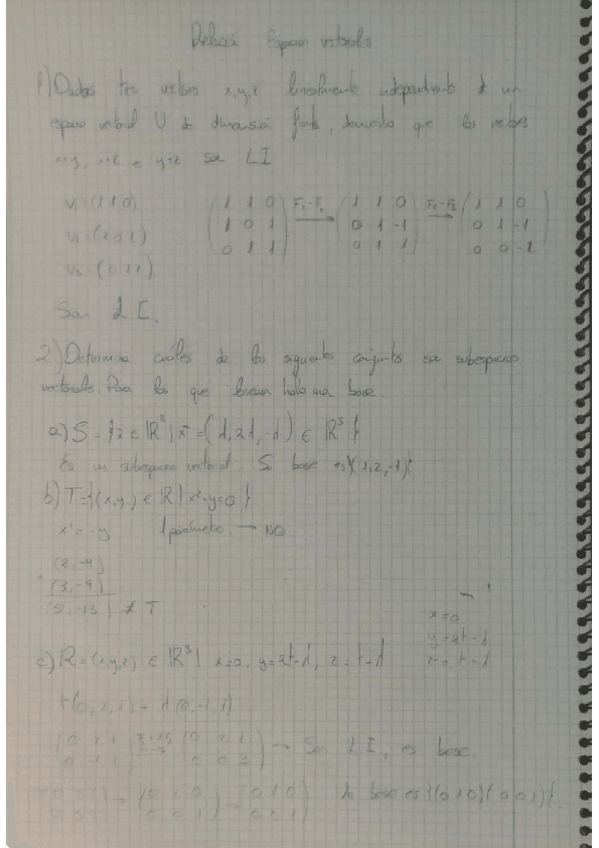 Relación Espacios vectoriales.
1) Dados tres vectores x,y,z linealmente independientes de un
espacio vectorial V de dimensión finita, demuestra que los vectores
x+y, x+z e y+z son LI
V₁=(1 1 0) (1 1 0 / 1 0 1 / 0 1 1) → (1 1 0 / 0 1 -1 / 0 1 1) → (1 1 0 / 0 1 -1 / 0 0 -2)
V₂=(1 0 1)
V₃=(0 1 1)
Son L I.
2) Determina cuáles de los siguientes conjuntos son subespacios
vectoriales. Para los que lo sean halla una base.
a) S = { ∈ ℝ³ | x̄ = (λ, 2λ, -λ) ∈ ℝ³ }
Es un subespacio vectorial. Su base es {(1,2,-1)}
b) T={(x,y) ∈ ℝ | x²-y=0 }
x² = -y 1 parámetro. → NO
(2,-4)
(3,-9)
(5,-13) ∉ T
x=0
y=2t-λ
z=t-λ
c) R=(x,y,z) ∈ ℝ³ | x=0, y=2t-λ, z=t-λ
t(0,2,1)+λ(0,-1,1)
→ (0 2 1 / 0 0 3) → Son L I, es base.
→ → (0 1 0 / 0 0 1) la base es {(0 1 0)(0 0 1)}.